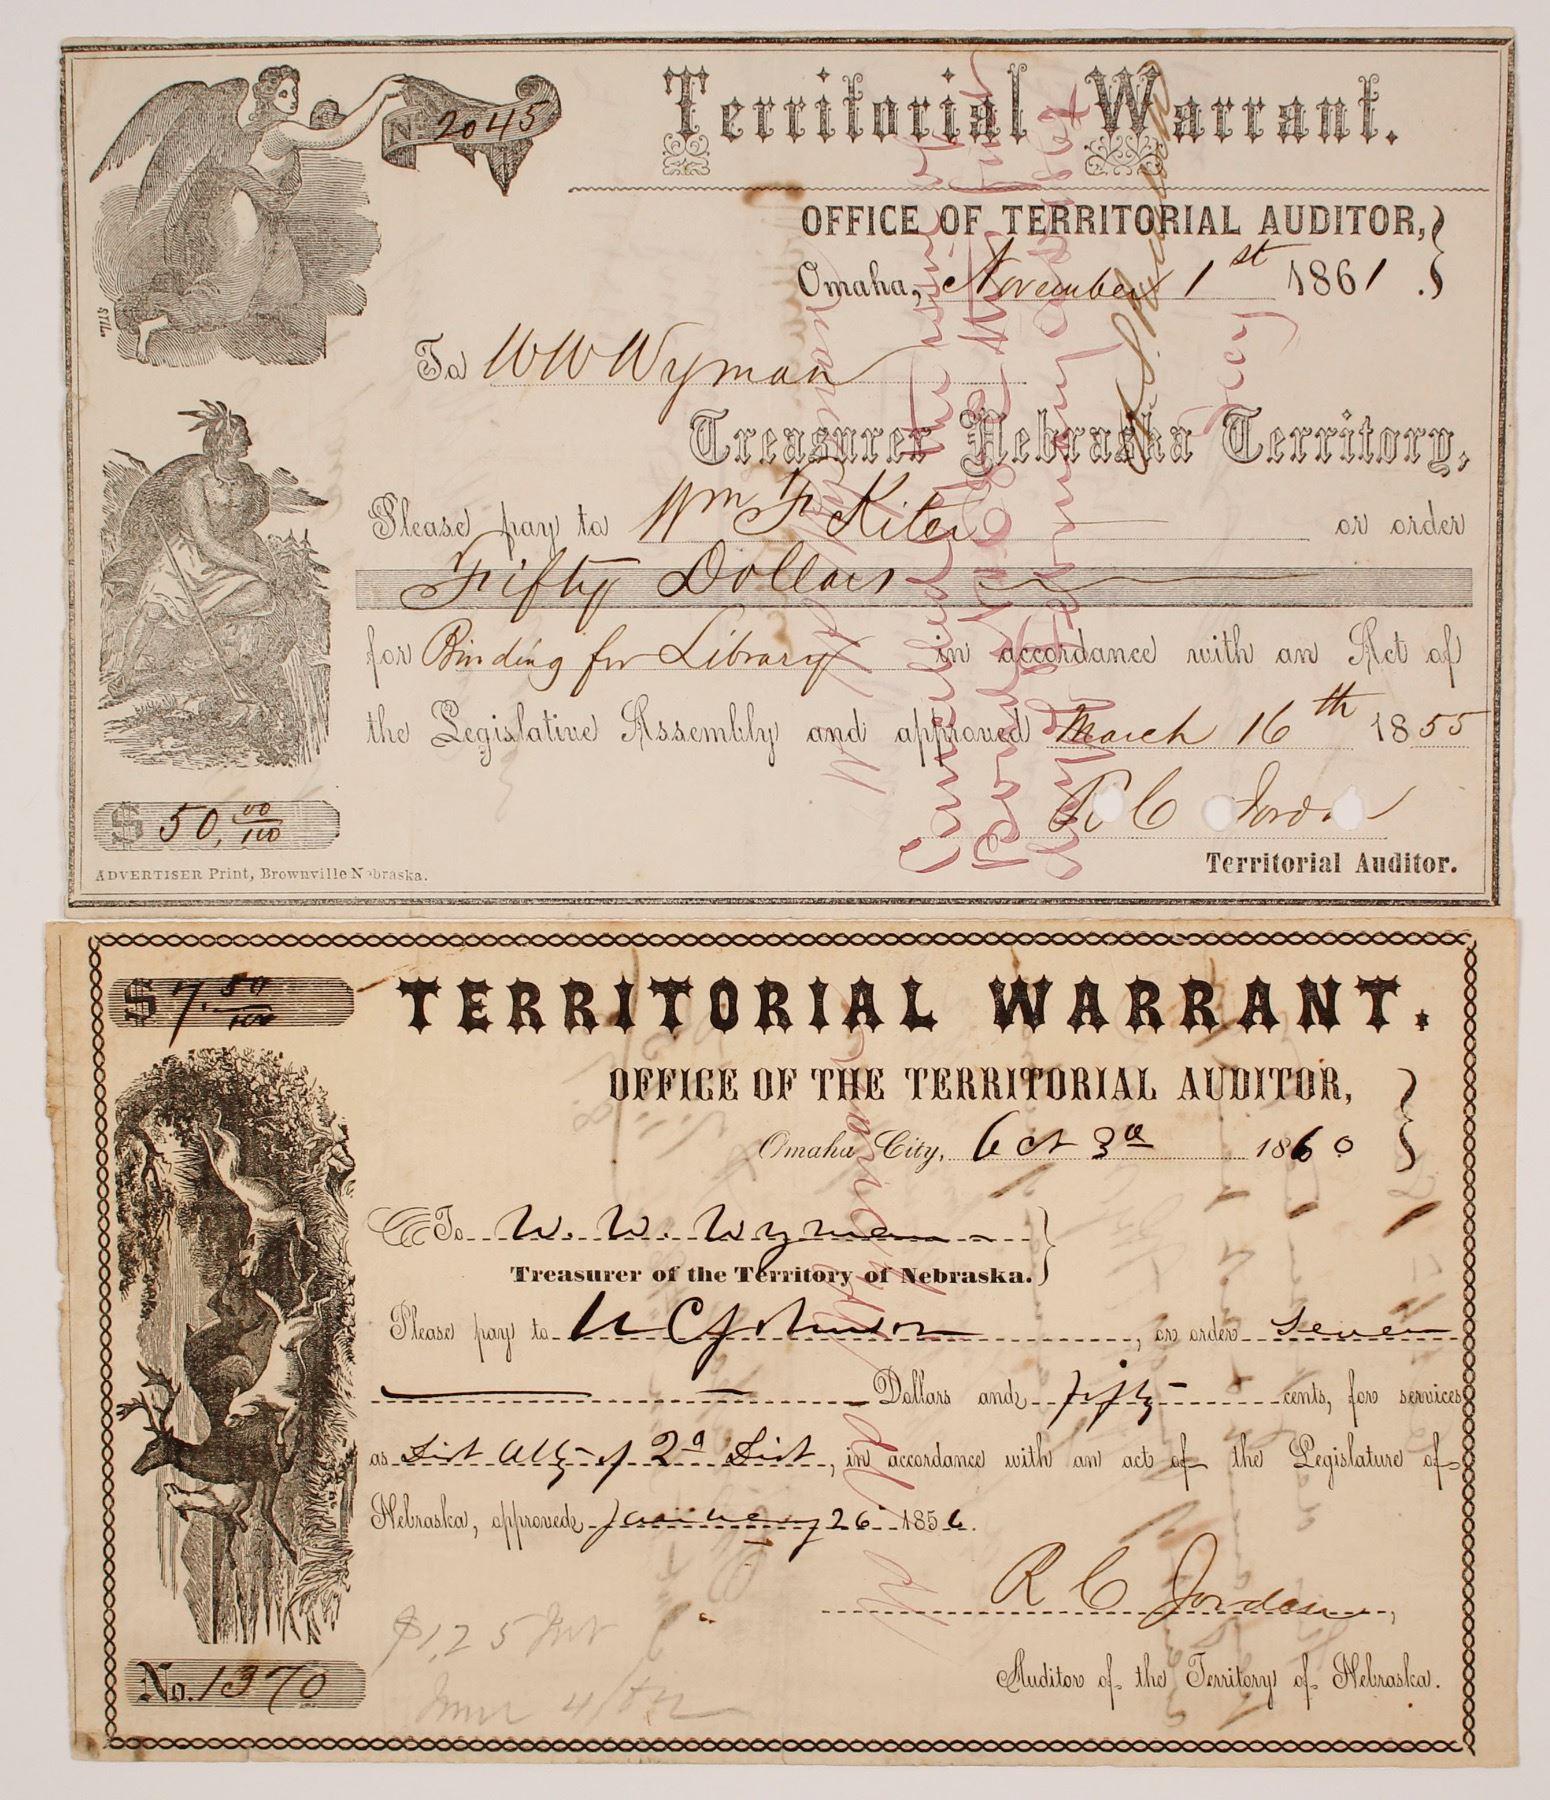 No. 2045
Territorial Warrant.
OFFICE OF TERRITORIAL AUDITOR,
Omaha, November 1st 1861.
To W W Wyman
Treasurer Nebraska Territory,
Please pay to Wm F Kiter or order
Fifty Dollars
for Binding for Library in accordance with an Act of
the Legislative Assembly and approved March 16th 1855
R C Jordan
Territorial Auditor.
$50,00/100
ADVERTISER Print, Brownville Nebraska.
STIL
$7.50/100
TERRITORIAL WARRANT.
OFFICE OF THE TERRITORIAL AUDITOR,
Omaha City, Oct 3d 1860
To W. W. Wyman
Treasurer of the Territory of Nebraska.
Please pay to Johnson, or order Seven
Dollars and fifty cents, for services
as Dist Atty of 2d Dist, in accordance with an act of the Legislature of
Nebraska, approved January 26 1856.
R C Jordan,
Auditor of the Territory of Nebraska.
No. 1370
$1,25 Int